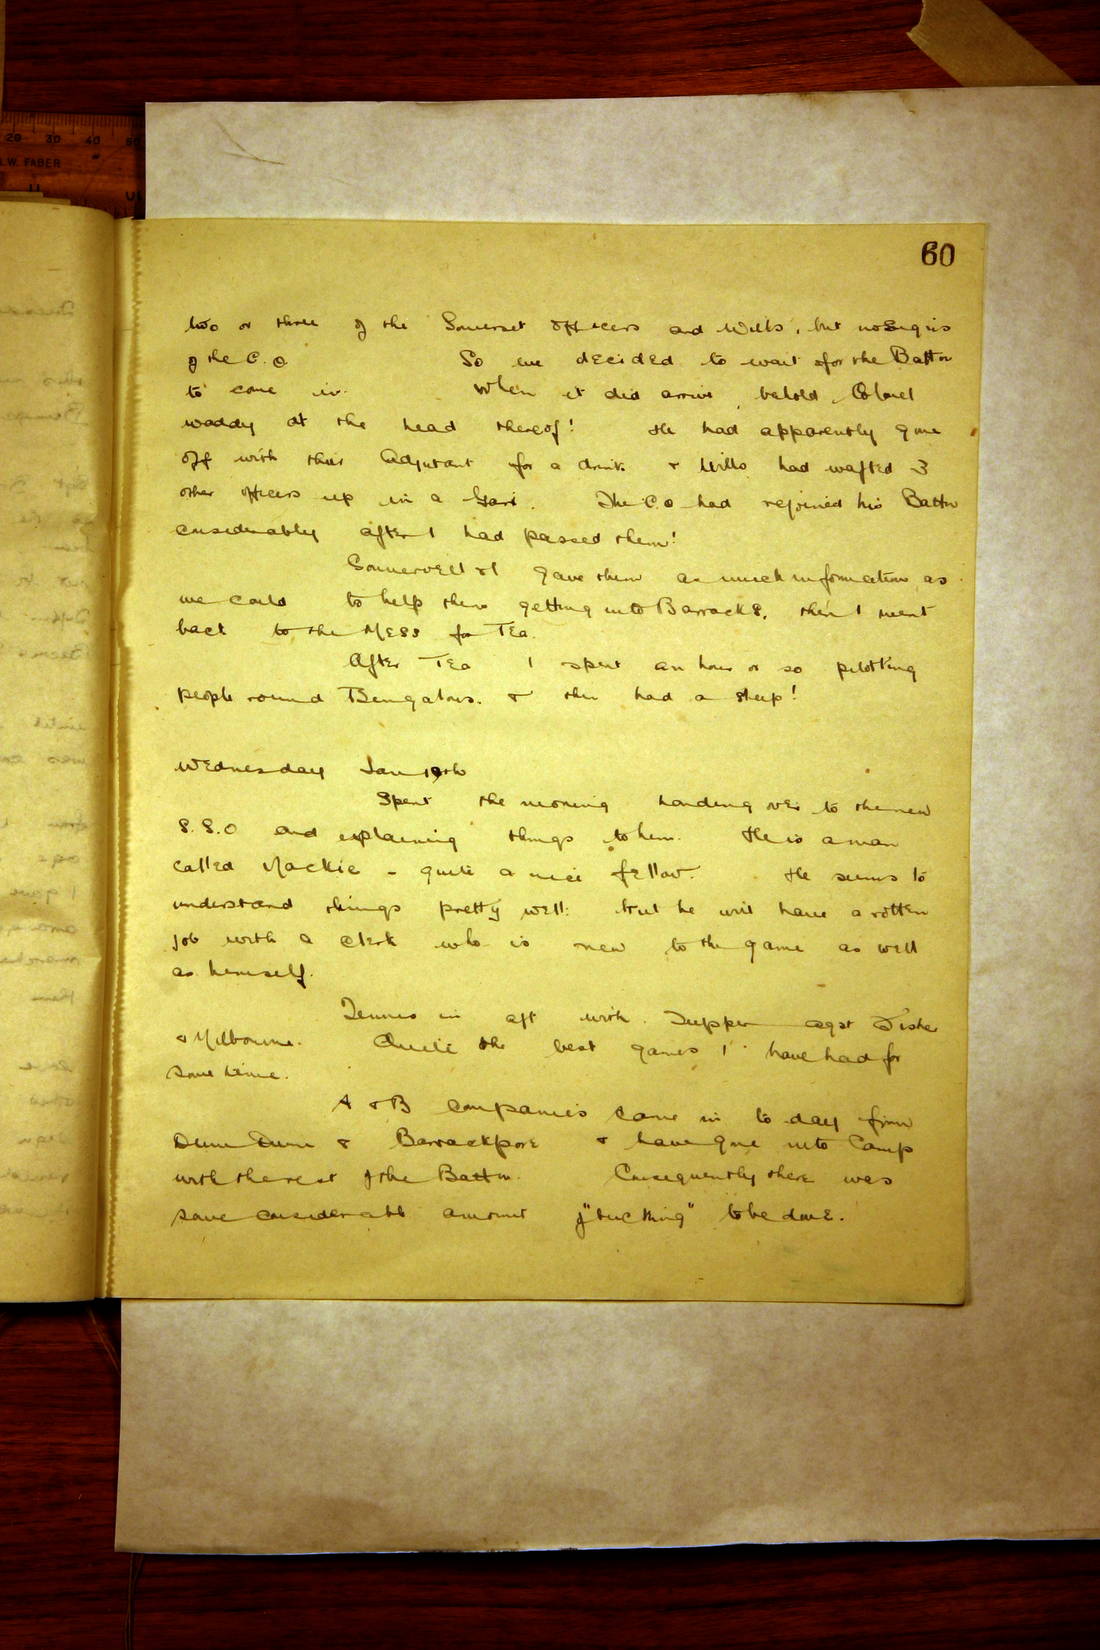 20 30 40 50
W. FABER
60
two or three of the Somerset Officers and Wills, but no signs
of the C.O. So we decided to wait for the Battn
to come in. When it did arrive, behold, Colonel
Waddy at the head thereof! He had apparently gone
off with their Adjutant for a drink & Wills had wafted 3
other officers up in a Gari. The C.O had rejoined his Battn
considerably after I had passed them!
Somervell & I gave them as much information as
we could to help them getting into Barracks, then I went
back to the Mess for Tea.
After Tea I spent an hour or so pilotting
people round Bungalows. & then had a sleep!
Wednesday Jan 19th
Spent the morning handing over to the new
S.S.O and explaining things to him. He is a man
called Mackie - quite a nice fellow. He seems to
understand things pretty well: but he will have a rotten
job with a clerk who is new to the game as well
as himself.
Tennis in aft with Tupper agst Fisher
& Milbourne. Quite the best games I have had for
some time.
A & B Companies came in to day from
Dum Dum & Barrackpore & have gone into Camp
with the rest of the Battn. Consequently there was
some considerable amount of "tucking" to be done.